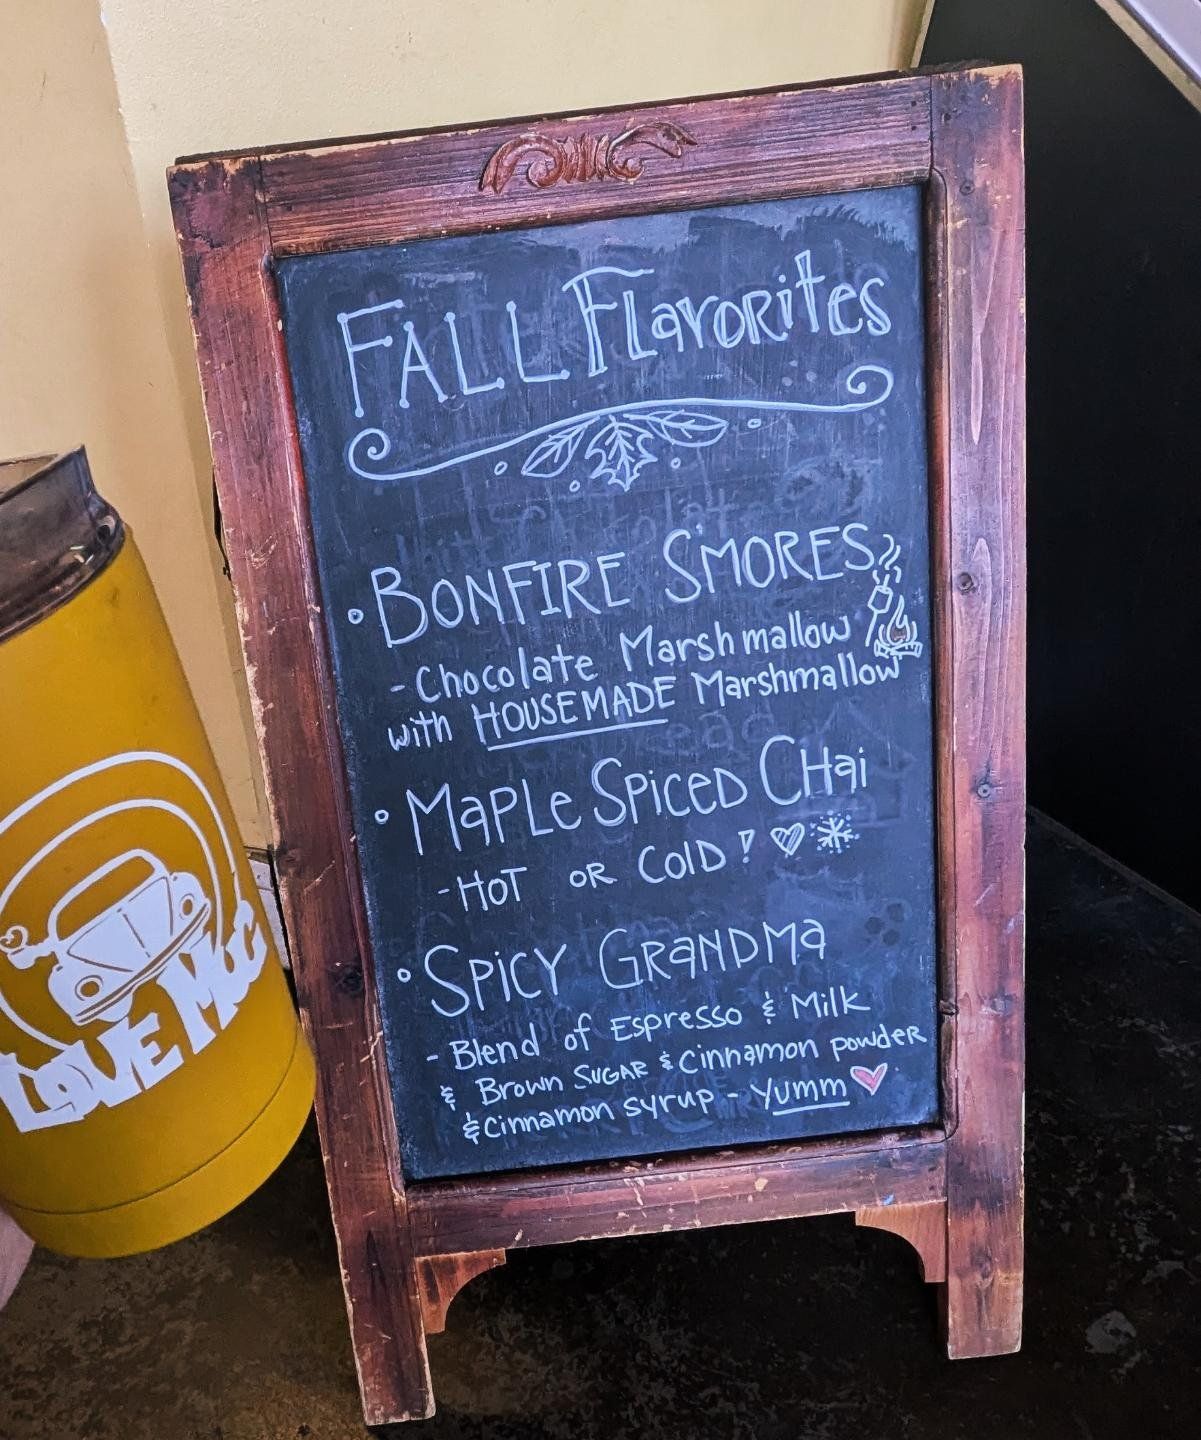 FALL Flavorites
• BONFIRE S'MORES
- Chocolate Marshmallow
with HOUSEMADE Marshmallow
• Maple Spiced CHai
- HOT OR COLD!
• SPICY GRANDMa
- Blend of Espresso & Milk
& Brown SUGAR & Cinnamon powder
& Cinnamon syrup - Yumm
LOVE